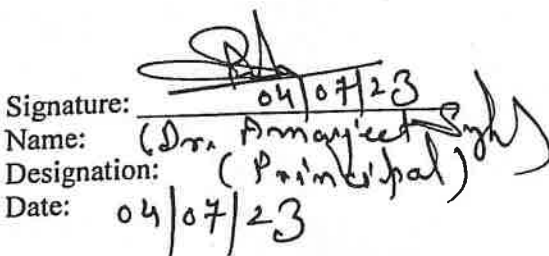 Signature: 04/07/23
Name: (Dr. Amarjeet Singh)
Designation: (Principal)
Date: 04/07/23